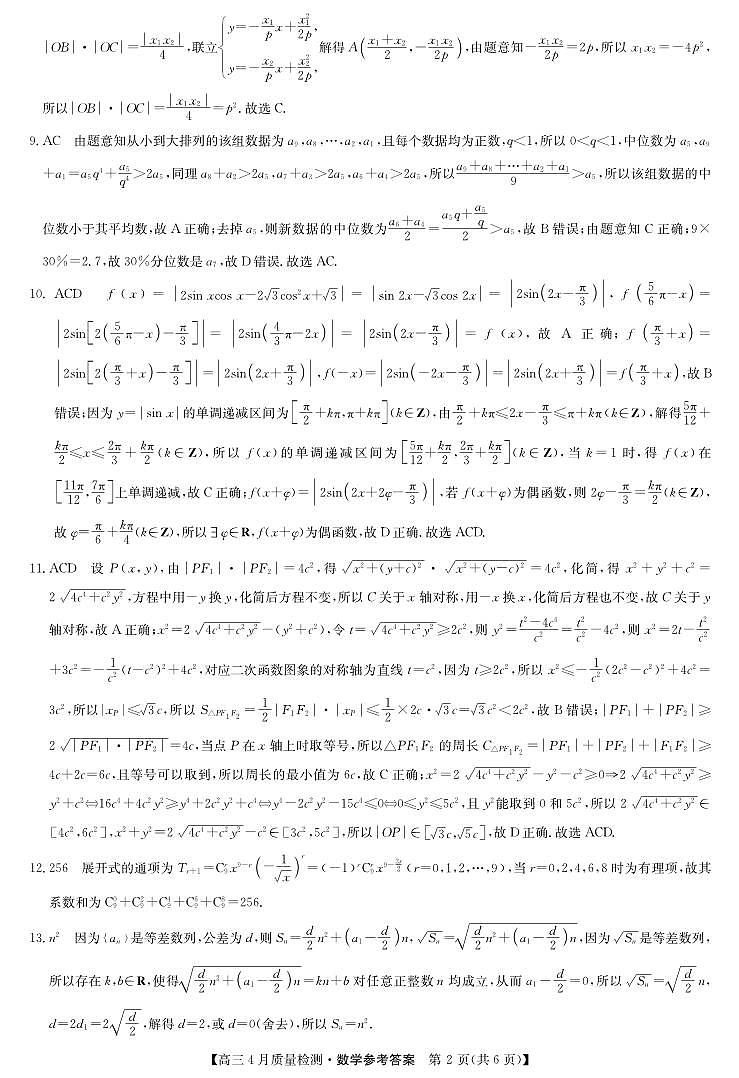 |OB|·|OC|=|x₁x₂|/4,联立{y=-x₁/p x+x₁²/2p, y=-x₂/p x+x₂²/2p, 解得 A((x₁+x₂)/2,-x₁x₂/2p),由题意知-x₁x₂/2p=2p,所以 x₁x₂=-4p²,
所以|OB|·|OC|=|x₁x₂|/4=p².故选C.
9. AC 由题意知从小到大排列的该组数据为 a₉,a₈,…,a₂,a₁,且每个数据均为正数,q<1,所以 0<q<1,中位数为 a₅,a₉
+a₁=a₅q⁴+a₅/q⁴>2a₅,同理 a₈+a₂>2a₅,a₇+a₃>2a₅,a₆+a₄>2a₅,所以(a₉+a₈+…+a₂+a₁)/9>a₅,所以该组数据的中
位数小于其平均数,故 A 正确;去掉 a₅,则新数据的中位数为(a₆+a₄)/2=(a₅q+a₅/q)/2>a₅,故 B 错误;由题意知 C 正确;9×
30%=2.7,故 30%分位数是 a₇,故 D 错误.故选 AC.
10. ACD f(x)=|2sin xcos x-2√3cos²x+√3|=|sin 2x-√3cos 2x|=|2sin(2x-π/3)|, f(5/6π-x)=
|2sin[2(5/6π-x)-π/3]|=|2sin(4/3π-2x)|=|2sin(2x-π/3)|=f(x),故 A 正确;f(π/3+x)=
|2sin[2(π/3+x)-π/3]|=|2sin(2x+π/3)|,f(-x)=|2sin(-2x-π/3)|=|2sin(2x+π/3)|=f(π/3+x),故 B
错误;因为 y=|sin x|的单调递减区间为[π/2+kπ,π+kπ](k∈Z),由π/2+kπ≤2x-π/3≤π+kπ(k∈Z),解得5π/12+
kπ/2≤x≤2π/3+kπ/2(k∈Z),所以 f(x)的单调递减区间为[5π/12+kπ/2,2π/3+kπ/2](k∈Z),当 k=1 时,得 f(x)在
[11π/12,7π/6]上单调递减,故 C 正确;f(x+φ)=|2sin(2x+2φ-π/3)|,若 f(x+φ)为偶函数,则 2φ-π/3=kπ/2(k∈Z),
故 φ=π/6+kπ/4(k∈Z),所以∃φ∈R,f(x+φ)为偶函数,故 D 正确.故选 ACD.
11. ACD 设 P(x,y),由|PF₁|·|PF₂|=4c²,得 √(x²+(y+c)²)·√(x²+(y-c)²)=4c²,化简,得 x²+y²+c²=
2√(4c⁴+c²y²),方程中用-y 换 y,化简后方程不变,所以 C 关于 x 轴对称,用-x 换 x,化简后方程也不变,故 C 关于 y
轴对称,故 A 正确;x²=2√(4c⁴+c²y²)-(y²+c²),令 t=√(4c⁴+c²y²)≥2c²,则 y²=(t²-4c⁴)/c²=t²/c²-4c²,则 x²=2t-t²/c²
+3c²=-1/c²(t-c²)²+4c²,对应二次函数图象的对称轴为直线 t=c²,因为 t≥2c²,所以 x²≤-1/c²(2c²-c²)²+4c²=
3c²,所以|xₚ|≤√3c,所以 S△PF₁F₂=1/2|F₁F₂|·|xₚ|≤1/2×2c·√3c=√3c²<2c²,故 B 错误;|PF₁|+|PF₂|≥
2√(|PF₁|·|PF₂|)=4c,当点 P 在 x 轴上时取等号,所以△PF₁F₂ 的周长 C△PF₁F₂=|PF₁|+|PF₂|+|F₁F₂|≥
4c+2c=6c,且等号可以取到,所以周长的最小值为 6c,故 C 正确;x²=2√(4c⁴+c²y²)-y²-c²≥0⇒2√(4c⁴+c²y²)≥
y²+c²⇔16c⁴+4c²y²≥y⁴+2c²y²+c⁴⇔y⁴-2c²y²-15c⁴≤0⇔0≤y²≤5c²,且 y²能取到 0 和 5c²,所以 2√(4c⁴+c²y²)∈
[4c²,6c²],x²+y²=2√(4c⁴+c²y²)-c²∈[3c²,5c²],所以|OP|∈[√3c,√5c],故 D 正确.故选 ACD.
12. 256 展开式的通项为 Tᵣ₊₁=C₉ʳx⁹⁻ʳ(-1/√x)ʳ=(-1)ʳC₉ʳx^(9-3r/2)(r=0,1,2,…,9),当 r=0,2,4,6,8 时为有理项,故其
系数和为 C₉⁰+C₉²+C₉⁴+C₉⁶+C₉⁸=256.
13. n² 因为{aₙ}是等差数列,公差为 d,则 Sₙ=d/2 n²+(a₁-d/2)n,√Sₙ=√(d/2 n²+(a₁-d/2)n),因为√Sₙ是等差数列,
所以存在 k,b∈R,使得√(d/2 n²+(a₁-d/2)n)=kn+b 对任意正整数 n 均成立,从而 a₁-d/2=0,所以√Sₙ=√(d/2) n,
d=2d₁=2√(d/2),解得 d=2,或 d=0(舍去),所以 Sₙ=n².
【高三 4 月质量检测·数学参考答案 第 2 页(共 6 页)】